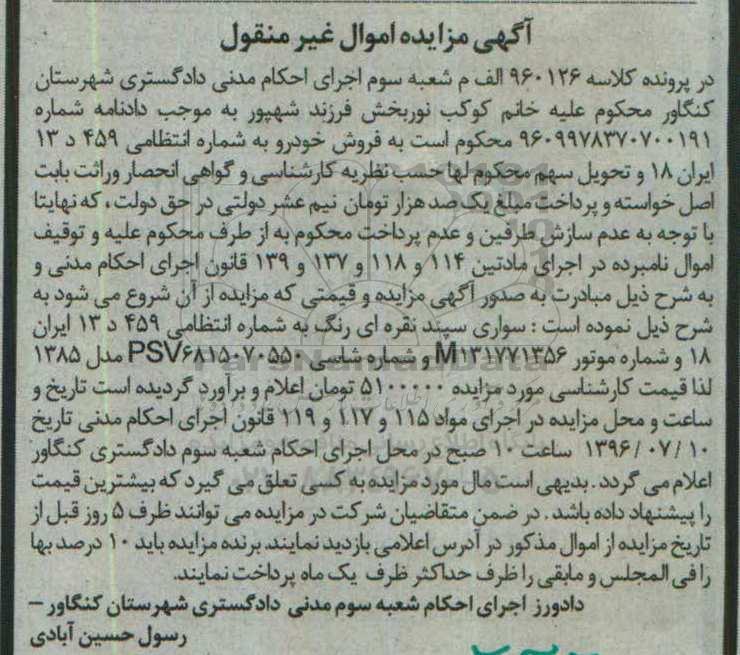 آگهی مزایده اموال غیر منقول
در پرونده کلاسه ۹۶۰۱۲۶ الف م شعبه سوم اجرای احکام مدنی دادگستری شهرستان
کنگاور محکوم علیه خانم کوکب نوربخش فرزند شهپور به موجب دادنامه شماره
۹۶۰۹۹۷۸۳۷۰۷۰۰۱۹۱ محکوم است به فروش خودرو به شماره انتظامی ۴۵۹ د ۱۳
ایران ۱۸ و تحویل سهم محکوم لها حسب نظریه کارشناسی و گواهی انحصار وراثت بابت
اصل خواسته و پرداخت مبلغ یک صد هزار تومان نیم عشر دولتی در حق دولت ، که نهایتا
با توجه به عدم سازش طرفین و عدم پرداخت محکوم به از طرف محکوم علیه و توقیف
اموال نامبرده در اجرای مادتین ۱۱۴ و ۱۱۸ و ۱۳۷ و ۱۳۹ قانون اجرای احکام مدنی و
به شرح ذیل مبادرت به صدور آگهی مزایده و قیمتی که مزایده از آن شروع می شود به
شرح ذیل نموده است : سواری سپند نقره ای رنگ به شماره انتظامی ۴۵۹ د ۱۳ ایران
۱۸ و شماره موتور M۱۳۱۷۷۱۳۵۶ و شماره شاسی PSV۶۸۱۵۰۷۰۵۵۰ مدل ۱۳۸۵
لذا قیمت کارشناسی مورد مزایده ۵۱۰۰۰۰۰ تومان اعلام و برآورد گردیده است تاریخ و
ساعت و محل مزایده در اجرای مواد ۱۱۵ و ۱۱۷ و ۱۱۹ قانون اجرای احکام مدنی تاریخ
۱۰ / ۰۷ / ۱۳۹۶ ساعت ۱۰ صبح در محل اجرای احکام شعبه سوم دادگستری کنگاور
اعلام می گردد . بدیهی است مال مورد مزایده به کسی تعلق می گیرد که بیشترین قیمت
را پیشنهاد داده باشد . در ضمن متقاضیان شرکت در مزایده می توانند ظرف ۵ روز قبل از
تاریخ مزایده از اموال مذکور در آدرس اعلامی بازدید نمایند. برنده مزایده باید ۱۰ درصد بها
را فی المجلس و مابقی را ظرف حداکثر ظرف یک ماه پرداخت نمایند.
دادورز اجرای احکام شعبه سوم مدنی دادگستری شهرستان کنگاور –
رسول حسین آبادی
ParsNamadData